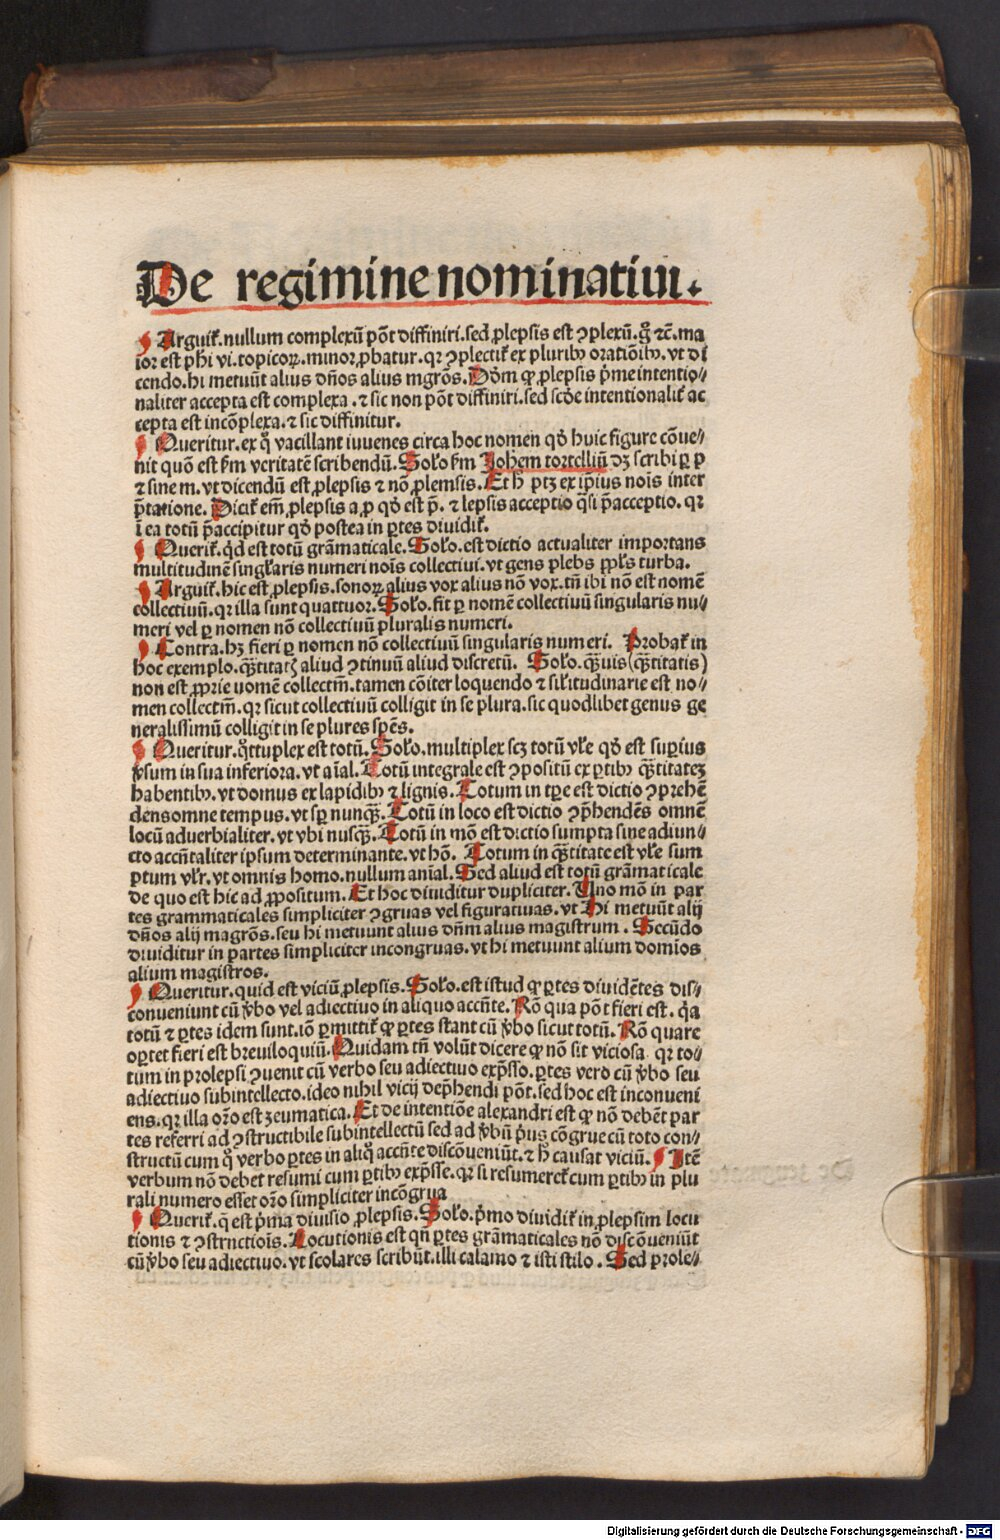 De regimine nominatiui.
Arguit᷑. nullum complexū pōt diffiniri. sed ꝓlepsis est ꝯplexū. g̊ ⁊c̄. ma
ior est phi vi. topicoꝝ. minor ꝓbatur. qꝛ ꝯplectit᷑ ex pluribꝰ orationibꝰ. vt di
cendo. hi metuūt alius dn̄os alius mgr̄os. Dōm ꝙ ꝓlepsis p̄me intentio⸗
naliter accepta est complexa. ⁊ sic non pōt diffiniri. sed scd̄e intentionalit᷑ ac
cepta est incōplexa. ⁊ sic diffinitur.
Queritur. ex quo vacillant iuuenes circa hoc nomen qd̄ huic figure cōue⸗
nit quō est ẜm veritatē scribendū. Solo ẜm Johem tortelliū dꝫ scribi ꝑ p
⁊ sine m. vt dicendū est ꝓlepsis ⁊ nō ꝓlemsis. Et h̄ ptꝫ ex ip̄ius nois inter
p̄tatione. Dicit᷑ em̄ ꝓlepsis a ꝓ qd̄ est p̄. ⁊ lepsis acceptio q̄si p̄acceptio. qꝛ
ī ea totū p̄accipitur qd̄ postea in ꝑtes diuidit᷑.
Querit᷑. qd̄ est totū grāmaticale. Solo. est dictio actualiter importans
multitudinē singlaris numeri nois collectiui. vt gens plebs ppls turba.
Arguit᷑. hic est ꝓlepsis. sonoꝝ alius vox alius nō vox. tn̄ ibi nō est nomē
collectiuū. qꝛ illa sunt quattuor. Solo. fit ꝑ nomē collectiuū singularis nu⸗
meri vel ꝑ nomen nō collectiuū pluralis numeri.
Contra. hꝫ fieri ꝑ nomen nō collectiuū singularis numeri. Probat᷑ in
hoc exemplo. q̄titatꝫ aliud ꝯtinuū aliud discretū. Solo. q̄uis (q̄titatis)
non est ꝓprie uomē collectm̄. tamen cōiter loquendo ⁊ silitudinarie est no⸗
men collectm̄. qꝛ sicut collectiuū colligit in se plura. sic quodlibet genus ge
neralissimū colligit in se plures spēs.
Queritur. qͦttuplex est totū. Solo. multiplex scꝫ totū vle qd̄ est supius
v̄sum in sua inferiora. vt aīal. Totū integrale est ꝯpositū ex ꝑtibꝰ q̄titatez
habentibꝰ. vt domus ex lapidibꝰ ⁊ lignis. Totum in tpe est dictio ꝯprehē
densomne tempus. vt sp nunq̄. Totū in loco est dictio ꝯp̄hendēs omnē
locū aduerbialiter. vt vbi nusq̄. Totū in mō est dictio sumpta sine adiun⸗
cto accn̄taliter ipsum determinante. vt hō. Totum in q̄titate est vle sum
ptum vlr. vt omnis homo. nullum anīal. Sed aliud est totū grāmaticale
de quo est hic ad ꝓpositum. Et hoc diuiditur dupliciter. Uno mō in par
tes grammaticales simpliciter ꝯgruas vel figuratiuas. vt Hi metuūt alij
dn̄os alij magrōs. seu hi metuunt alius dn̄m alius magistrum. Secūdo
diuiditur in partes simpliciter incongruas. vt hi metuunt alium domīos
alium magistros.
Queritur. quid est viciū ꝓlepsis. Solo. est istud ꝙ ꝑtes diuidētes dis⸗
conueniunt cū v̄bo vel adiectiuo in aliquo accn̄te. Rō qua pōt fieri est. qꝛ
totū ⁊ ꝑtes idem sunt. iō ꝑmittit᷑ ꝙ ꝑtes stant cū v̄bo sicut totū. Rō quare
oꝑtet fieri est breuiloquiū. Quidam tn̄ volūt dicere ꝙ non sit viciosa qꝛ to⸗
tum in prolepsi ꝯuenit cū verbo seu adiectiuo exp̄sso. ꝑtes vero cū v̄bo seu
adiectiuo subintellecto. ideo nihil vicij dep̄hendi pōt. sed hoc est inconueni
ens. qꝛ illa orō est zeumatica. Et de intentiōe alexandri est ꝙ nō debēt par
tes referri ad ꝯstructibile subintellectū sed ad v̄bū p̄us cōgrue cū toto con⸗
structū cum quo verbo ꝑtes in aliquo accn̄te discōueniūt. ⁊ h̄ causat viciū. Itē
verbum nō debet resumi cum ꝑtibꝰ exp̄sse. qꝛ si resumeret᷑ cum ꝑtibꝰ in plu
rali numero esset orō simpliciter incōgrua
Querit᷑. q̄ est p̄ma diuisio ꝓlepsis. Solo. p̄mo diuidit᷑ in ꝓlepsim locu
tionis ⁊ ꝯstructiois. Locutionis est qn̄ ꝑtes grāmaticales nō discōueniūt
cū v̄bo seu adiectiuo. vt scolares scribūt. illi calamo ⁊ isti stilo. Sed prole⸗
Digitalisierung gefördert durch die Deutsche Forschungsgemeinschaft - DFG